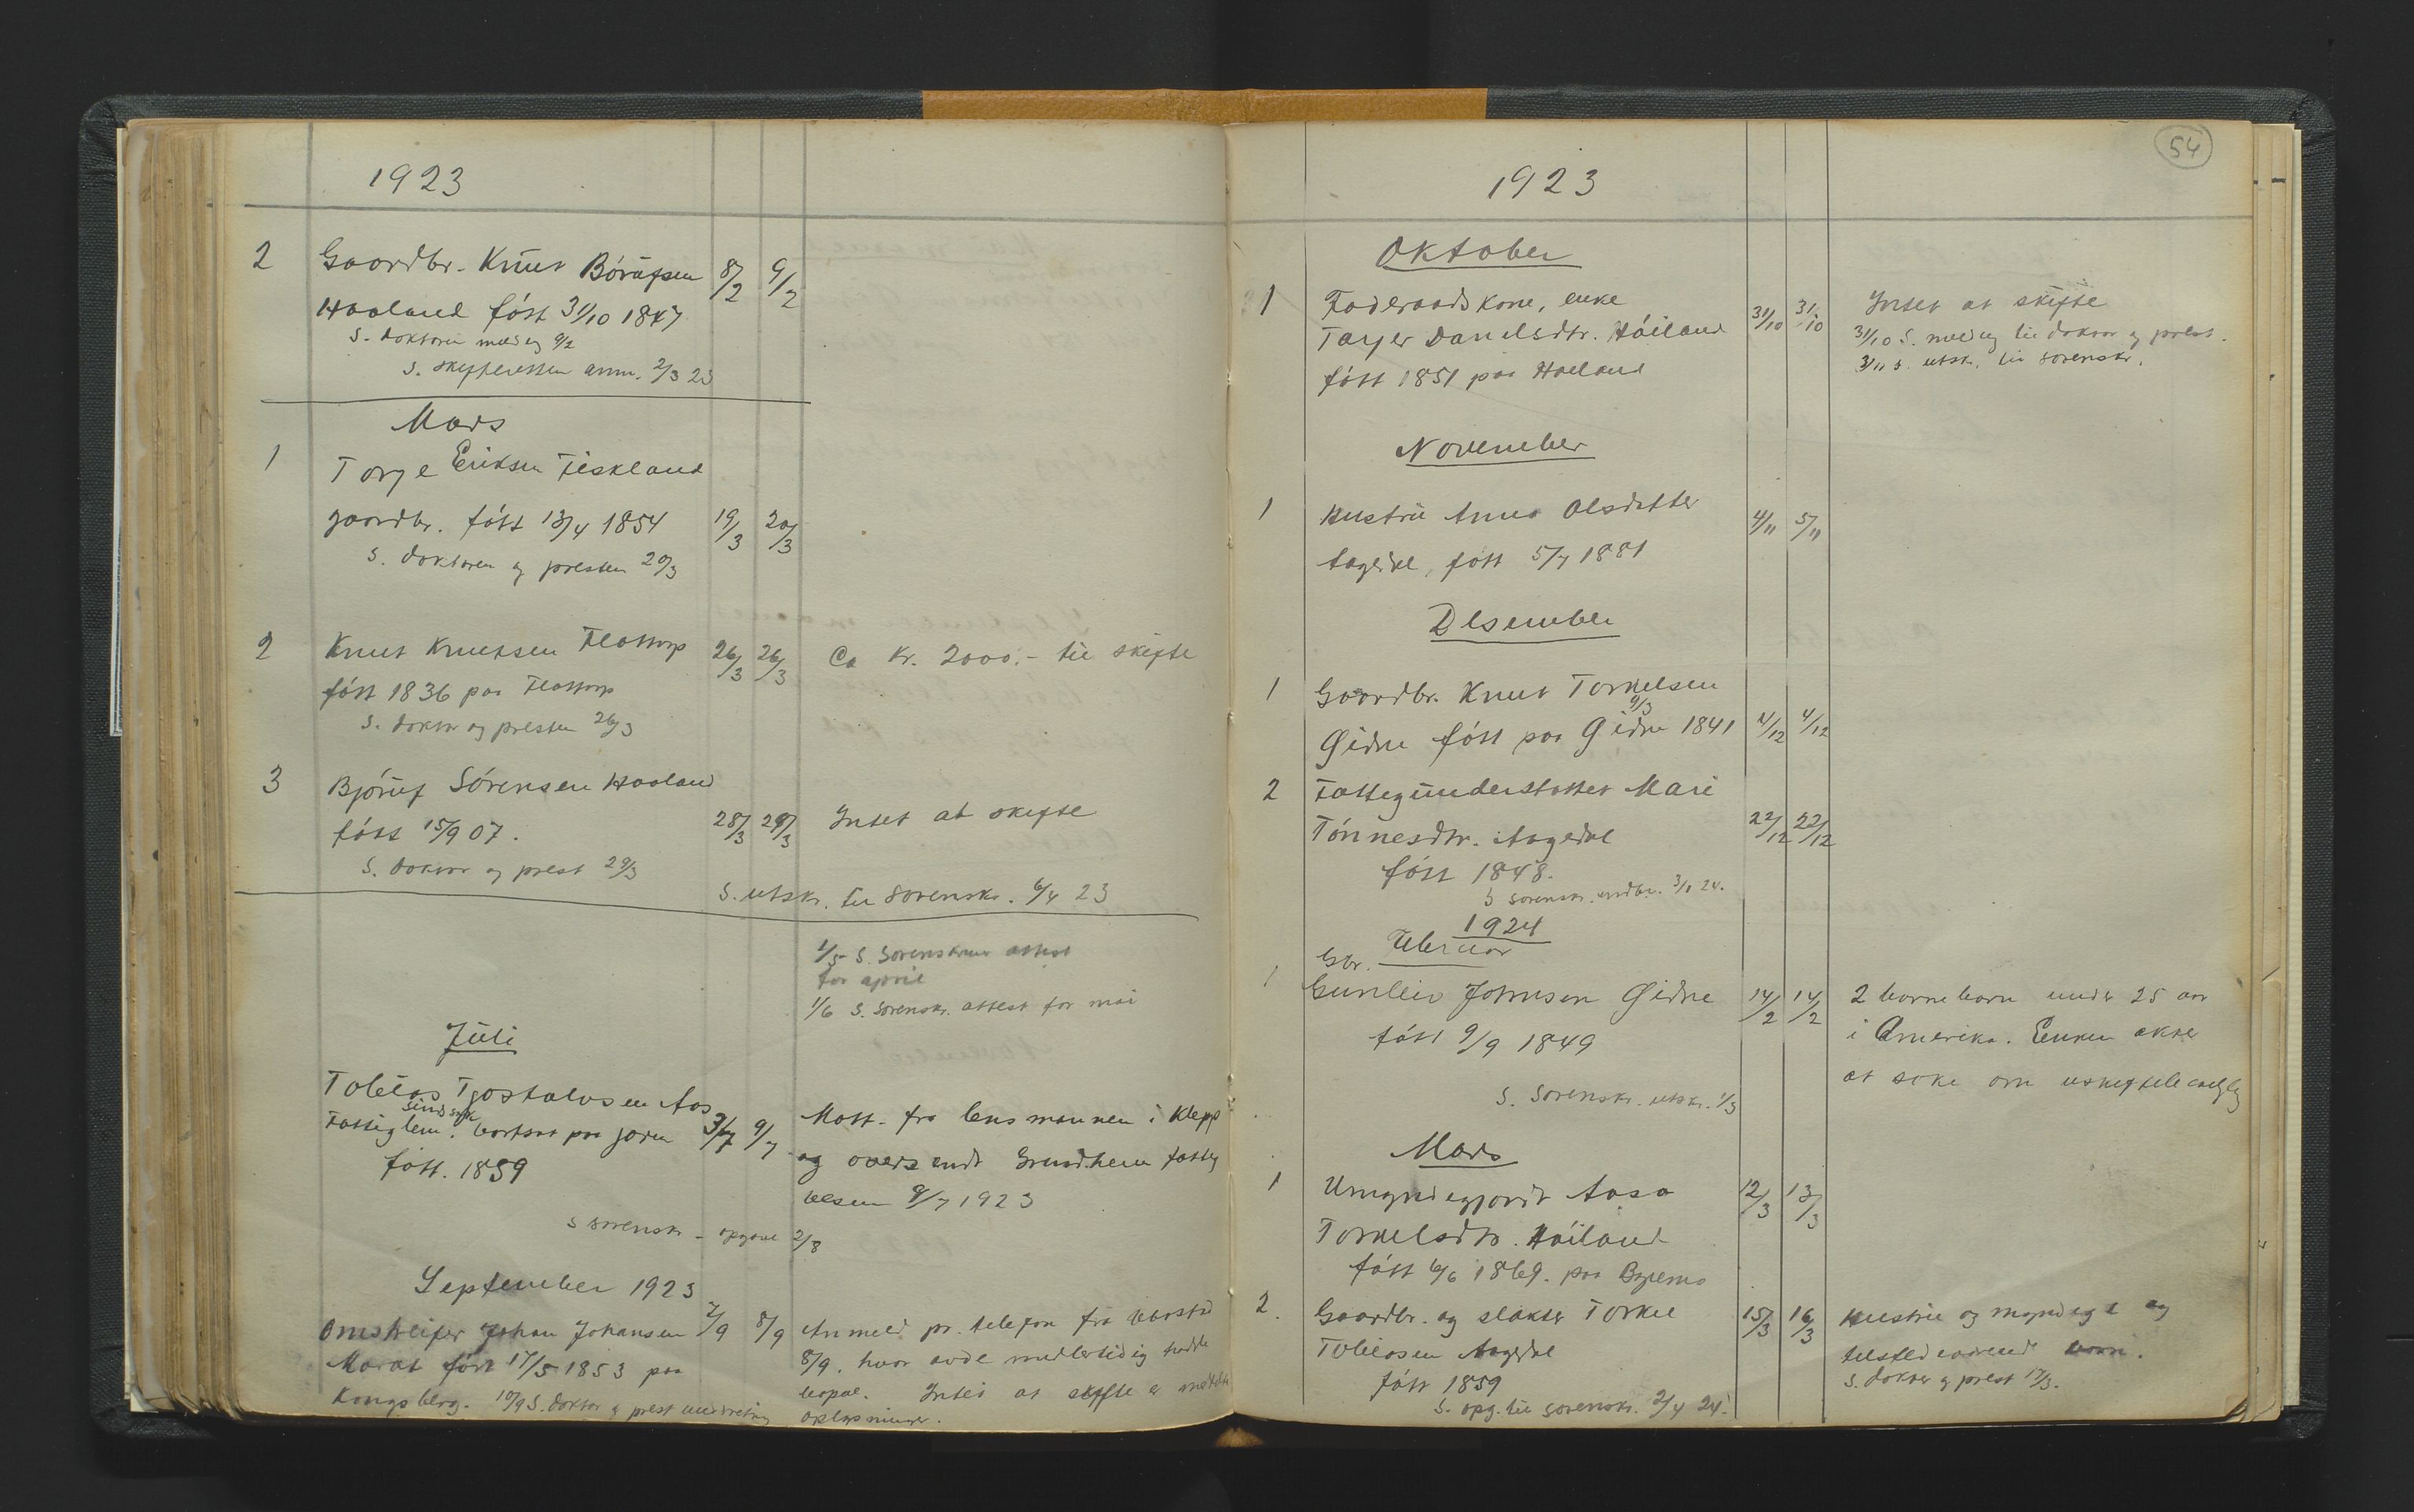 1923
2 Gaardbr. Knut Börufsen 8/2 9/2
Haaland föst 31/10 1847
S. doktoren meld eg 9/2
S. skifteretten anm. 2/3 23
Mars
1 Torje Eriksen Fiskland
gaardbr. fött 13/4 1854 19/3 20/3
S. doktoren og presten 20/3
2 Knut Knutsen Flottorp 26/3 26/3 Ca Kr. 2000.- til skifte
fött 1836 paa Flottorp
S. doktor og presten 26/3
3 Björuf Sörensen Haaland
fött 15/9 07. 28/3 29/3 Intet at skifte
S. doktor og prest 29/3
S. utskr. til Sorenskr. 6/4 23
1/5 S. Sorenskriver attest
for april
1/6 S. Sorenskr. attest for mai
Juli
Tobias Tjostolvsen Aas
sindssyk
Fattiglem. bortsat paa jæren 3/7 9/7 Mott. fra lensmannen i Klepp
og oversendt Grindheim fattig
fött. 1859
vesen 9/7 1923
S sorenskr - opgave 2/8
September 1923
Omstreifer Johan Johansen 7/9 8/9 Anmeld pr. telefon fra
Marat fött 17/5 1853 paa 8/9. hvor avde midlertidig hadde
Kongsberg. 10/9 S. doktor og prest underretning
bopæl. Intet at skifte e
oplysninger.
54
1923
Oktober
1 Föderaadskone, enke
Tarjer Danielsdtr. Höiland 31/10 31/10 Intet at skifte
31/10 S. meld eg til doktor og prest.
fött 1851 paa Haaland 3/11 S. utskr. til sorenskr.
November
1 Hustru Anna Olsdatter 4/11 5/11
Aagedal, fött 5/7 1881
Desember
1 Gaardbr. Knut Torkelsen
9/3
Gidne fött paa Gidne 1841 4/12 4/12
2 Fattigunderstöttet Mari
Tönnesdtr. Aagedal 22/12 22/12
fött 1848.
S sorenskr. 3/1 24.
1924
Februar
Gbr.
1 Gunleiv Johnsen Gidne 14/2 14/2 2 barnebarn under 25 aar
fött 9/9 1849 i Amerika. Enken akter
at söke om uskiftebevilg
S. Sorenskr. utskr. 1/3
Mars
1 Umyndiggjordt Aasa 12/3 13/3
Torkelsdtr. Höiland
fött 6/6 1869. paa Bryemo
2. Gaardbr. og slakter Torkel 15/3 16/3 Hustru og myndige og
Tobiasen Aagedal tilstedeværende barn.
fött 1859 S. doktor og prest 17/3.
S. opg. til sorenskr. 2/4 24.